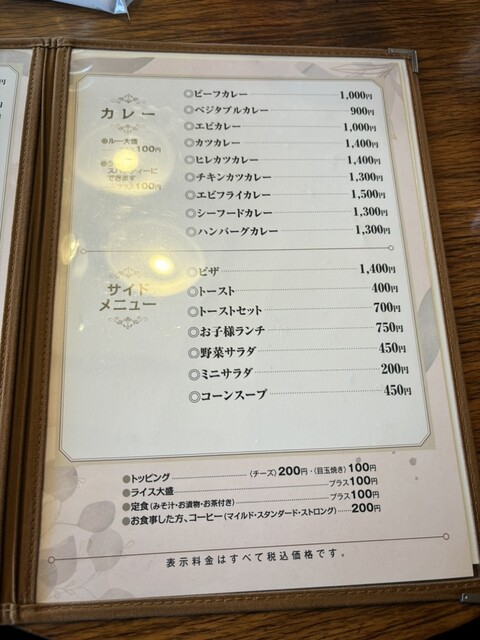 カレー
●ルー大盛
100円
スパゲティーに
できます
100円
◎ビーフカレー 1,000円
◎ベジタブルカレー 900円
◎エビカレー 1,000円
◎カツカレー 1,400円
◎ヒレカツカレー 1,400円
◎チキンカツカレー 1,300円
◎エビフライカレー 1,500円
◎シーフードカレー 1,300円
◎ハンバーグカレー 1,300円
サイド
メニュー
◎ピザ 1,400円
◎トースト 400円
◎トーストセット 700円
◎お子様ランチ 750円
◎野菜サラダ 450円
◎ミニサラダ 200円
◎コーンスープ 450円
●トッピング (チーズ)200円・(目玉焼き)100円
●ライス大盛 プラス100円
●定食(みそ汁・お漬物・お茶付き) プラス100円
●お食事した方、コーヒー(マイルド・スタンダード・ストロング) 200円
表示料金はすべて税込価格です。